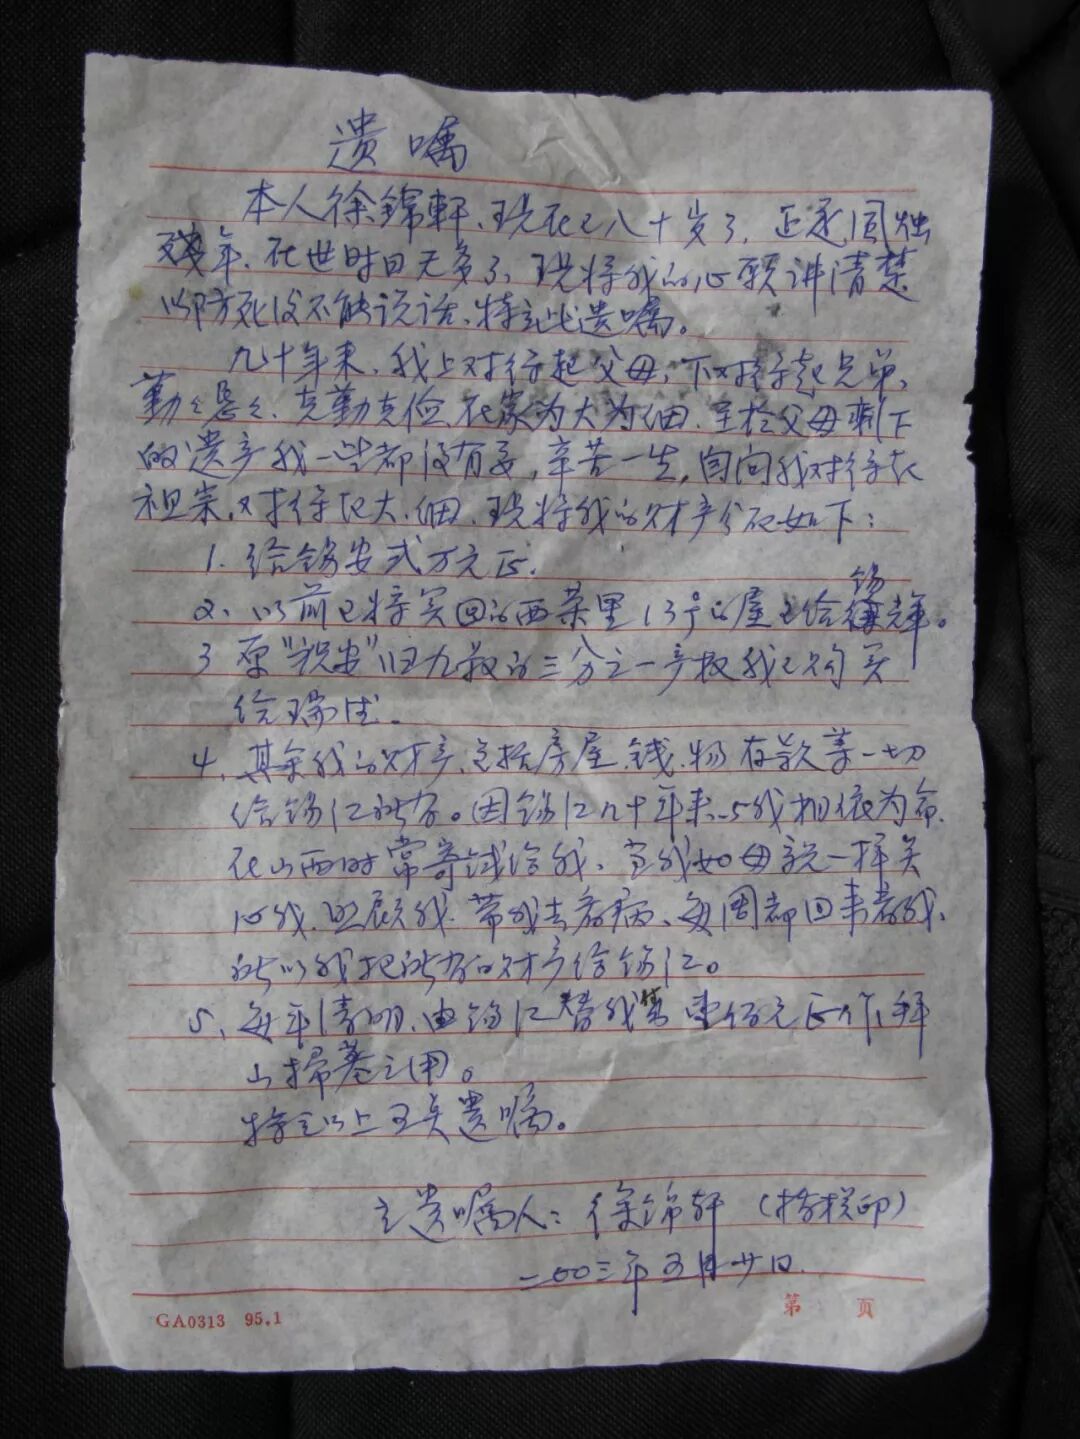 遗嘱
本人徐锦軒、现在已八十岁了，正是風烛
残年、在世时日无多了，现将我的心愿讲清楚
以防死后不能说话、特立此遗嘱。
几十年来、我上对得起父母，下对得起兄弟，
勤勤恳恳、克勤克俭、在家为大为细、至於父母剩下
的遗产我一些都没有要，辛苦一生，自问我对得起
祖宗，对得起大、细、现将我的财产分配如下：
1. 给锡安弍万元正.
2、以前已将买回的西荣里13号的屋已给锡辉。
3 原“祝安”旧九教的三分之一产权我已购买
给瑞生。
4、其余我的财产、包括房屋、钱、物、存款等一切
给锡江所有。因锡江几十年来与我相依为命、
在山西时常寄钱给我、当我如母亲一样关
心我、照顾我、带我去看病、每周都回来看我、
所以我把所有的财产给锡江。
5、每年清明、由锡江替我 壹佰元正作拜
山掃墓之用。
特立以上五点遗嘱。
立遗嘱人：徐锦軒（指模印）
二00三年五月廿日.
GA0313 95.1
第 页